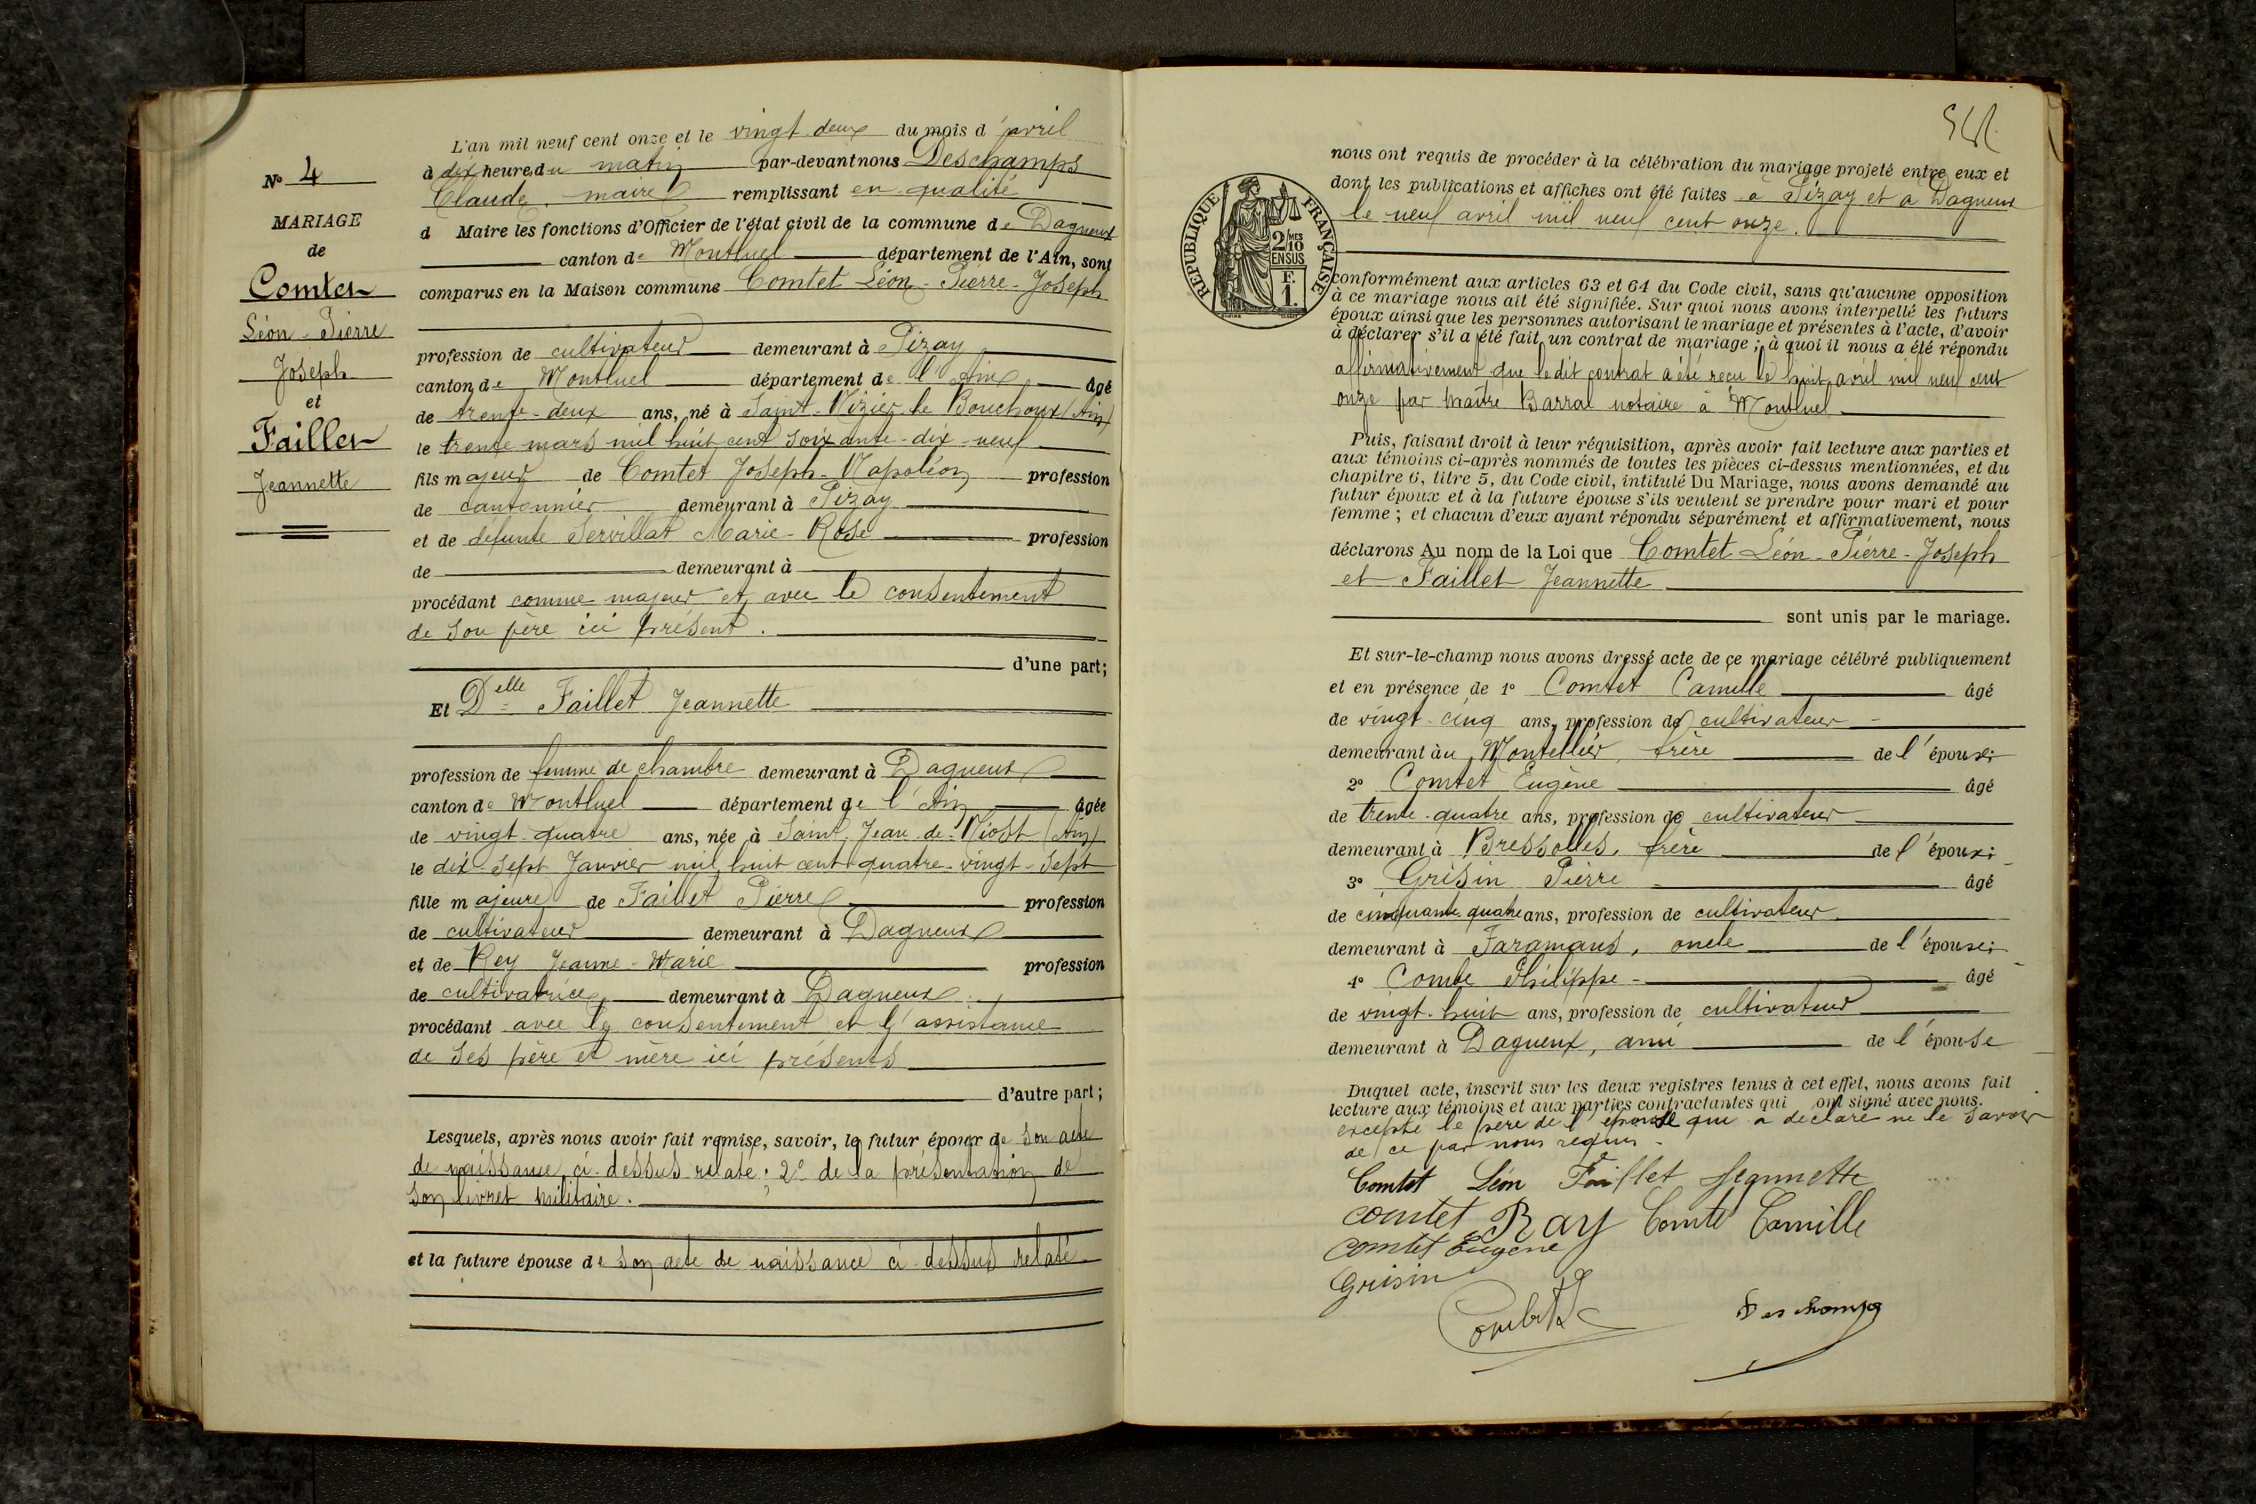 N° 4
MARIAGE
de
Comtet
Léon - Pierre
Joseph
et
Faillet
Jeannette
L'an mil neuf cent onze et le vingt deux du mois d'avril
à dix heures du matin par-devant nous Deschamps
Claude, maire remplissant en qualité
d Maire les fonctions d'Officier de l'état civil de la commune de Dagneux
canton de Montluel département de l'Ain, sont
comparus en la Maison commune Comtet Léon - Pierre - Joseph
profession de cultivateur demeurant à Pizay
canton de Montluel département de l'Ain âgé
de trente-deux ans, né à Saint-Nizier-le Bouchoux (Ain)
le trente mars mil huit cent soixante-dix-neuf
fils majeur de Comtet Joseph-Napoléon profession
de cantonnier demeurant à Pizay
et de defunte Servillat Marie-Rose profession
de demeurant à
procédant comme majeur et avec le consentement
de son père ici présent.
d'une part;
Et Delle Faillet Jeannette
profession de femme de chambre demeurant à Dagneux
canton de Montluel département de l'Ain âgée
de vingt-quatre ans, née à Saint-Jean-de-Niost (Ain)
le dix-sept Janvier mil huit cent quatre-vingt-sept
fille majeure de Faillet Pierre profession
de cultivateur demeurant à Dagneux
et de Rey Jeanne-Marie profession
de cultivatrice, demeurant à Dagneux
procédant avec le consentement et l'assistance
de ses père et mère ici présents
d'autre part;
Lesquels, après nous avoir fait remise, savoir, le futur époux de son acte
de naissance ci-dessus relaté; 2° de la présentation de
son livret militaire.
et la future épouse de son acte de naissance ci-dessus relaté
nous ont requis de procéder à la célébration du mariage projeté entre eux et
dont les publications et affiches ont été faites à Pizay et à Dagneux
le neuf avril mil neuf cent onze.
RÉPUBLIQUE FRANÇAISE
2/MES
10
EN SUS
F.
1.
conformément aux articles 63 et 64 du Code civil, sans qu'aucune opposition
à ce mariage nous ait été signifiée. Sur quoi nous avons interpellé les futurs
époux ainsi que les personnes autorisant le mariage et présentes à l'acte, d'avoir
à déclarer s'il a été fait un contrat de mariage; à quoi il nous a été répondu
affirmativement que le dit contrat a été reçu le huit avril mil neuf cent
onze par maître Barral notaire à Montluel
Puis, faisant droit à leur réquisition, après avoir fait lecture aux parties et
aux témoins ci-après nommés de toutes les pièces ci-dessus mentionnées, et du
chapitre 6, titre 5, du Code civil, intitulé Du Mariage, nous avons demandé au
futur époux et à la future épouse s'ils veulent se prendre pour mari et pour
femme; et chacun d'eux ayant répondu séparément et affirmativement, nous
déclarons Au nom de la Loi que Comtet Léon-Pierre-Joseph
et Faillet Jeannette
sont unis par le mariage.
Et sur-le-champ nous avons dressé acte de ce mariage célébré publiquement
et en présence de 1° Comtet Camille âgé
de vingt-cinq ans, profession de cultivateur
demeurant au Montellier, frère de l'époux;
2° Comtet Eugène âgé
de trente-quatre ans, profession de cultivateur
demeurant à Bressolles, frère de l'époux;
3° Grisin Pierre âgé
de cinquante quatre ans, profession de cultivateur
demeurant à Faramans, oncle de l'épouse;
4° Combe Philippe âgé
de vingt-huit ans, profession de cultivateur
demeurant à Dagneux, ami de l'épouse
Duquel acte, inscrit sur les deux registres tenus à cet effet, nous avons fait
lecture aux témoins et aux parties contractantes qui ont signé avec nous.
excepté le père de l'épouse qui a déclaré ne le savoir
de ce par nous requis.
Comtet Léon Faillet Jeannette
comtet Ray Comte Camille
Comtet Eugene
Grisin
Deschamps